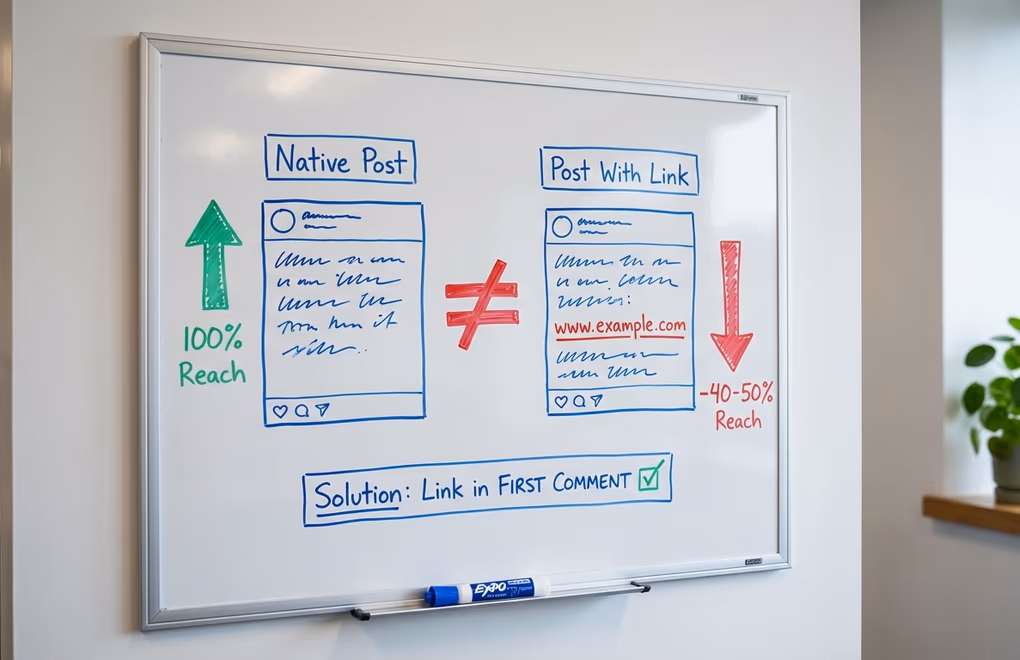 Native Post
Post With Link
www.example.com
100%
Reach
-40-50%
Reach
Solution: Link in FIRST COMMENT
EXPO